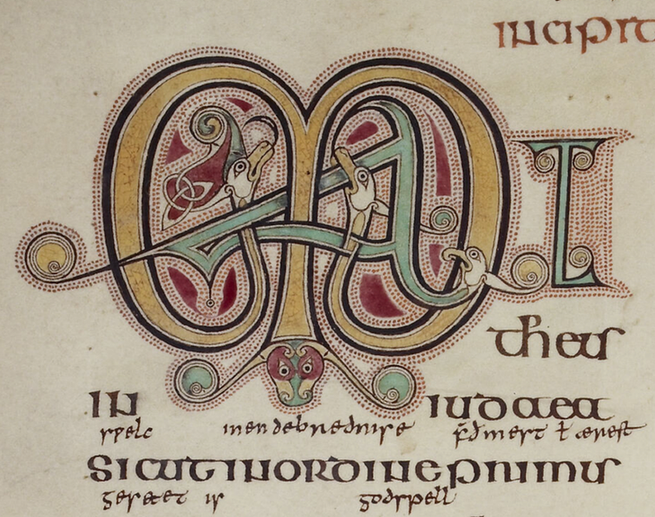 INCIPIT
MAT
theus
IN IUDAEA
suelc in endebrednise f'ðmest ł ærest
SICUT IN ORDINE PRIMUS
geseted is godspell